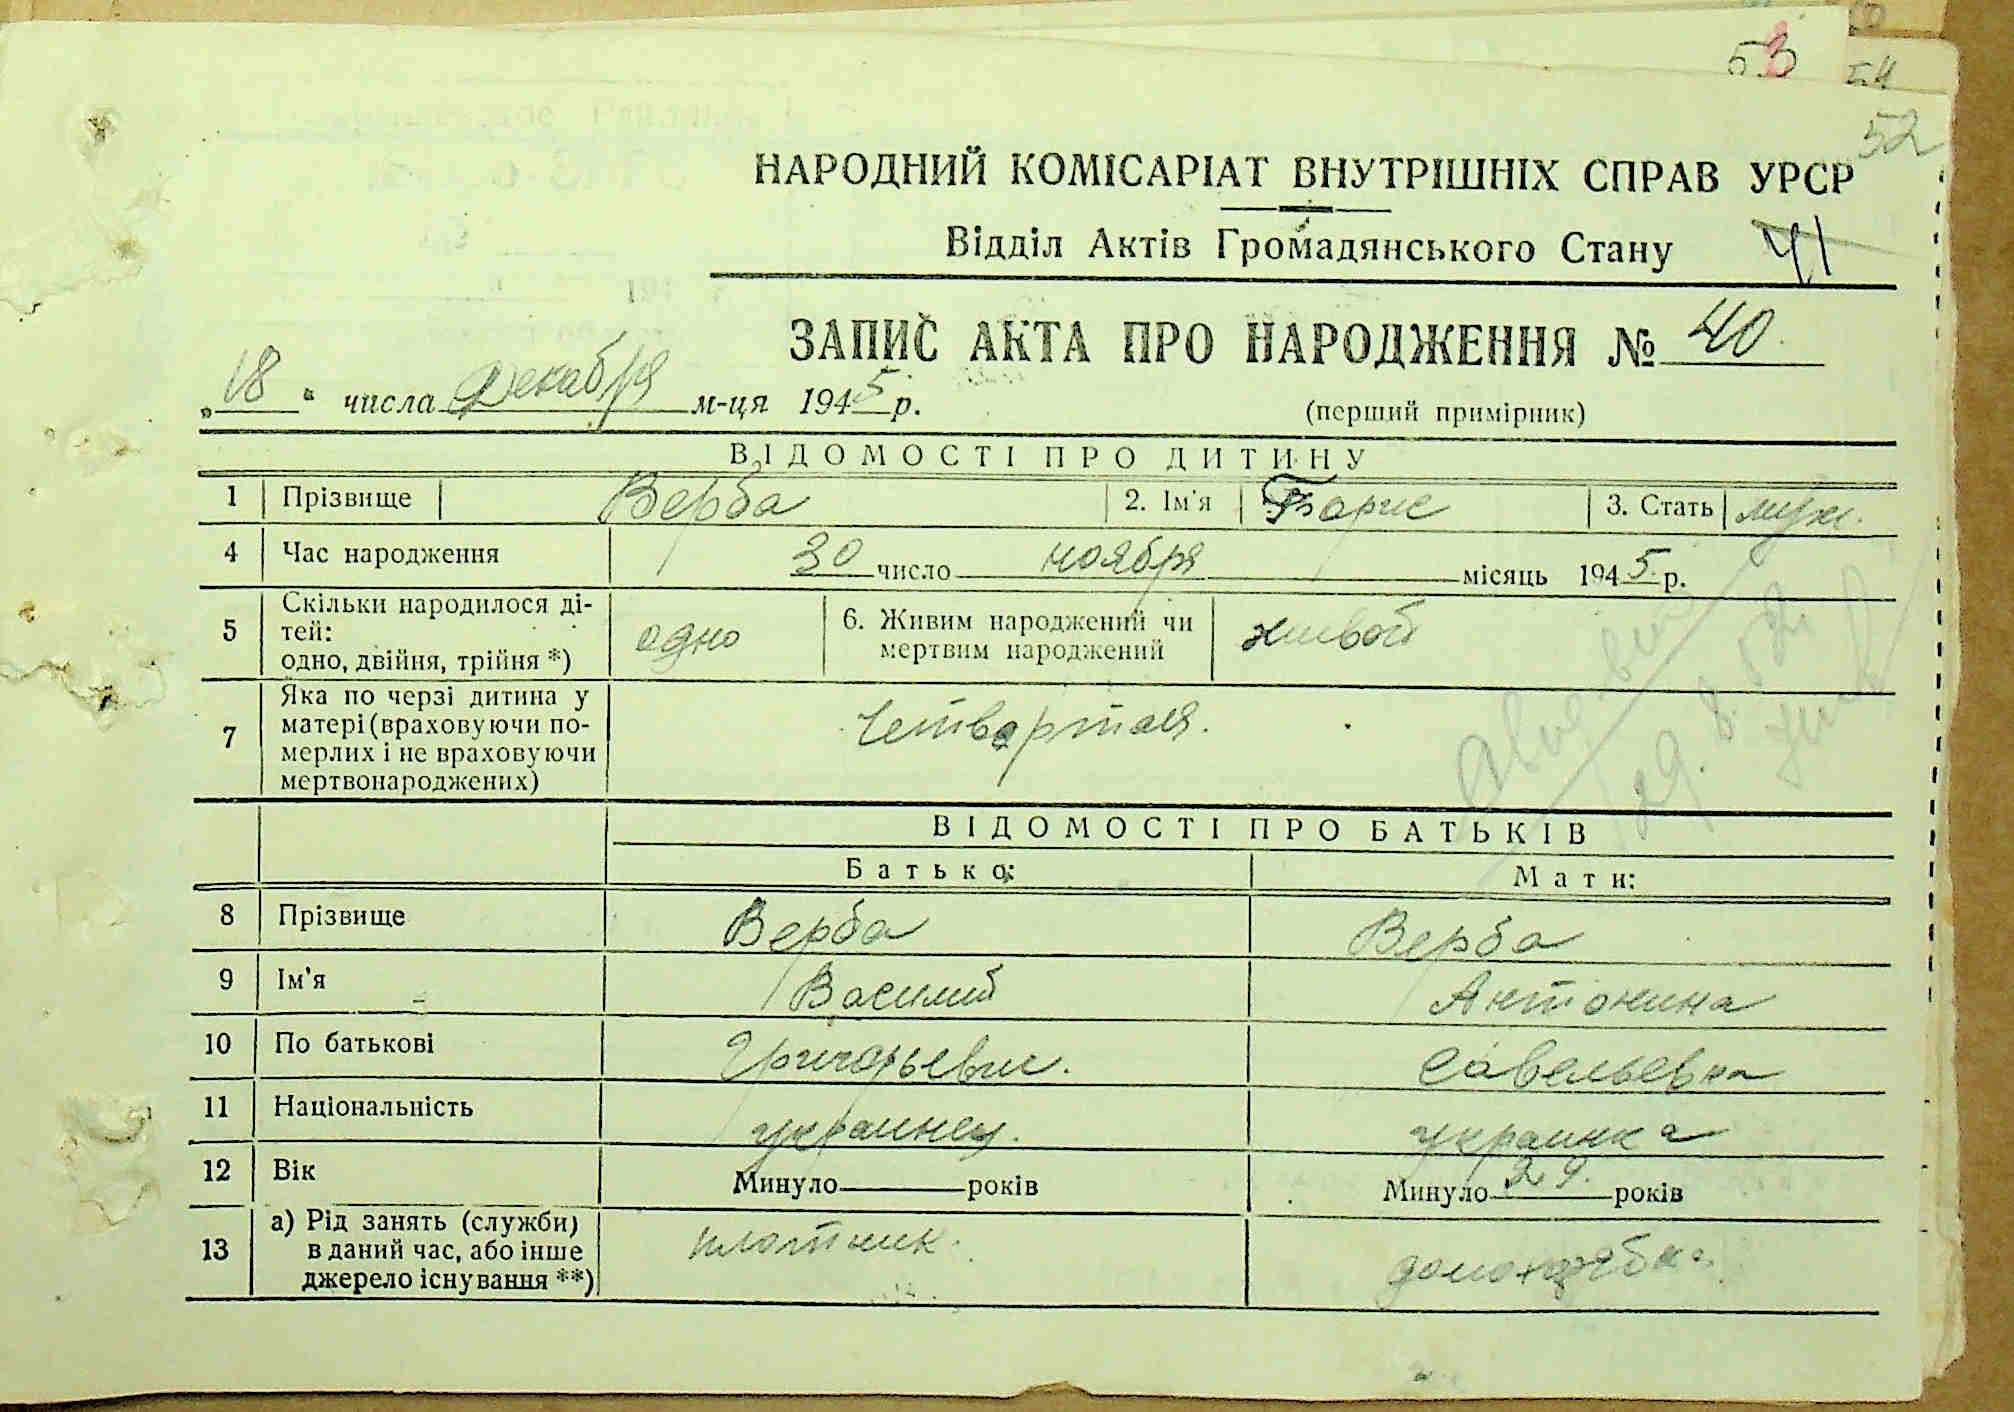 53
54
52
НАРОДНИЙ КОМІСАРІАТ ВНУТРІШНІХ СПРАВ УРСР
Відділ Актів Громадянського Стану 41
ЗАПИС АКТА ПРО НАРОДЖЕННЯ № 40
„18" числа Декабря м-ця 1945 р.
(перший примірник)
ВІДОМОСТІ ПРО ДИТИНУ
1 Прізвище Верба 2. Ім'я Борис 3. Стать муж.
4 Час народження 30 число ноября місяць 1945 р.
5 Скільки народилося ді-
тей:
одно, двійня, трійня *) одно 6. Живим народжений чи
мертвим народжений живой
7 Яка по черзі дитина у
матері (враховуючи по-
мерлих і не враховуючи
мертвонароджених) Четвертая.
29. 8. 52
ВІДОМОСТІ ПРО БАТЬКІВ
Батько: Мати:
8 Прізвище Верба Верба
9 Ім'я Василий Антонина
10 По батькові Григорьевич. Савельевна
11 Національність украинец. украинка
12 Вік Минуло років Минуло 29. років
13 а) Рід занять (служби)
в даний час, або інше
джерело існування **) плотник. домохозяйка.